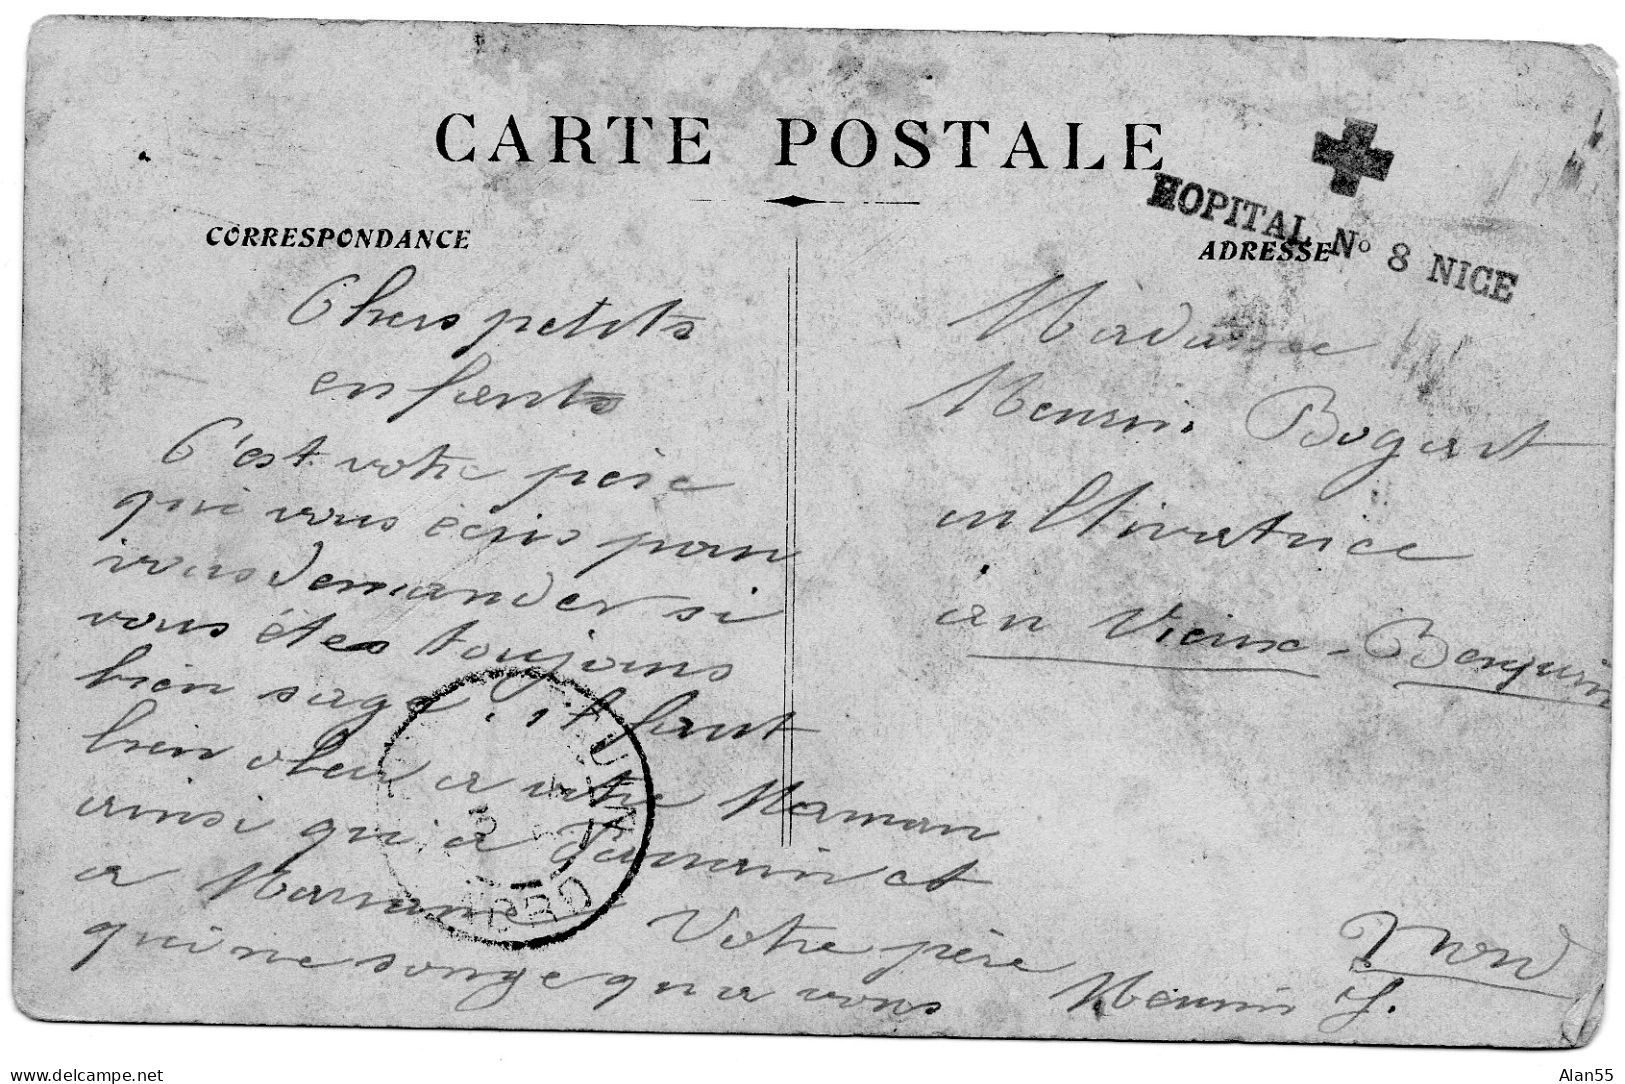 CARTE POSTALE
HOPITAL No 8 NICE
CORRESPONDANCE
Chers petits
enfants
C'est votre père
qui vous écris pour
vous demander si
vous êtes toujours
bien sage. il faut
bien obeir a votre Maman
ainsi qu'a et
a Votre père
qui ne songe qu'a vous
Meurin J.
ADRESSE
Madame
Meurin Bogart
cultivatrice
en Vieux-Berquin
Nord
delcampe.net
Alan55